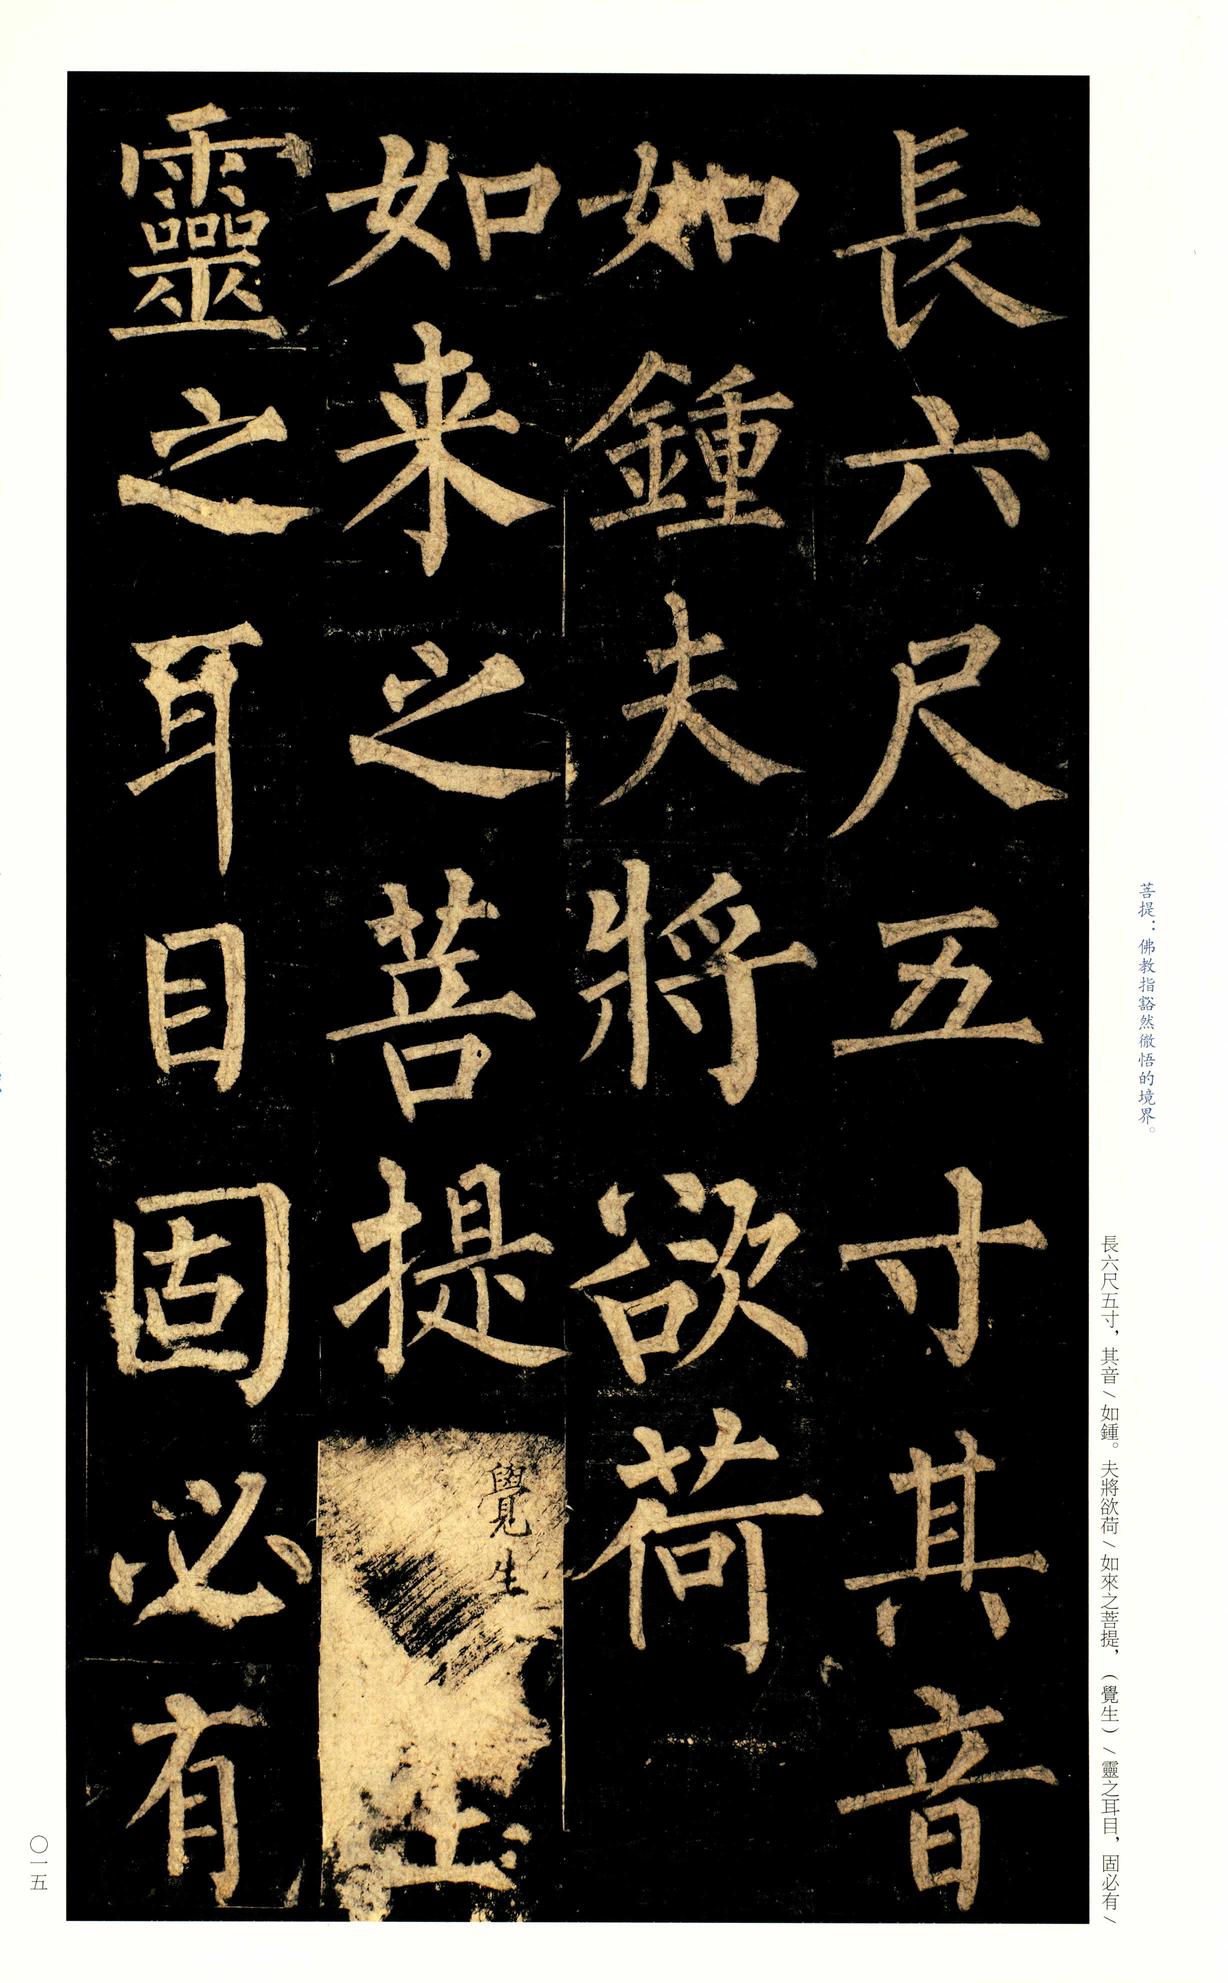 長六尺五寸其音
如鍾夫將欲荷
如来之菩提
覺生
生
靈之耳目固必有
菩提：佛教指豁然徹悟的境界。
長六尺五寸，其音/如鍾。夫將欲荷/如來之菩提，（覺生）/靈之耳目，固必有/
〇一五